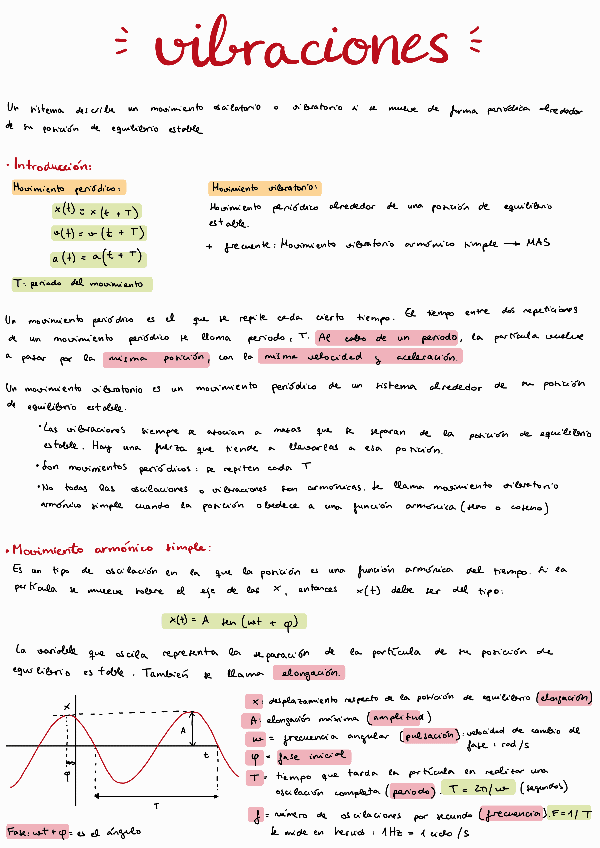 vibraciones
Un sistema describe un movimiento oscilatorio o vibratorio si se mueve de forma periódica alrededor
de su posición de equilibrio estable
· Introducción:
Movimiento periódico:
x(t) = x(t + T)
v(t) = v(t + T)
a(t) = a(t + T)
T: periodo del movimiento
Movimiento vibratorio:
Movimiento periódico alrededor de una posición de equilibrio
estable.
+ frecuente: Movimiento vibratorio armónico simple → MAS
Un movimiento periódico es el que se repite cada cierto tiempo. El tiempo entre dos repeticiones
de un movimiento periódico se llama periodo, T. Al cabo de un periodo, la partícula vuelve
a pasar por la misma posición, con la misma velocidad y aceleración.
Un movimiento vibratorio es un movimiento periódico de un sistema alrededor de su posición
de equilibrio estable.
· Las vibraciones siempre se asocian a masas que se separan de la posición de equilibrio
estable. Hay una fuerza que tiende a llevarlas a esa posición.
· Son movimientos periódicos: se repiten cada T
· No todas las oscilaciones o vibraciones son armónicas. Se llama movimiento vibratorio
armónico simple cuando la posición obedece a una función armónica (seno o coseno)
· Movimiento armónico simple:
Es un tipo de oscilación en la que la posición es una función armónica del tiempo. Si la
partícula se mueve sobre el eje de las x, entonces x(t) debe ser del tipo:
x(t) = A sen (wt + φ)
La variable que oscila representa la separación de la partícula de su posición de
equilibrio estable. También se llama elongación.
x
A
t
φ
T
Fase: wt + φ = es el ángulo
x: desplazamiento respecto de la posición de equilibrio (elongación)
A: elongación máxima (amplitud)
w = frecuencia angular (pulsación): velocidad de cambio de
fase: rad/s
φ = fase inicial
T = tiempo que tarda la partícula en realizar una
oscilación completa (periodo). T = 2π/w (segundos)
f = número de oscilaciones por segundo (frecuencia). F = 1/T
Se mide en hercios: 1Hz = 1 ciclo/s